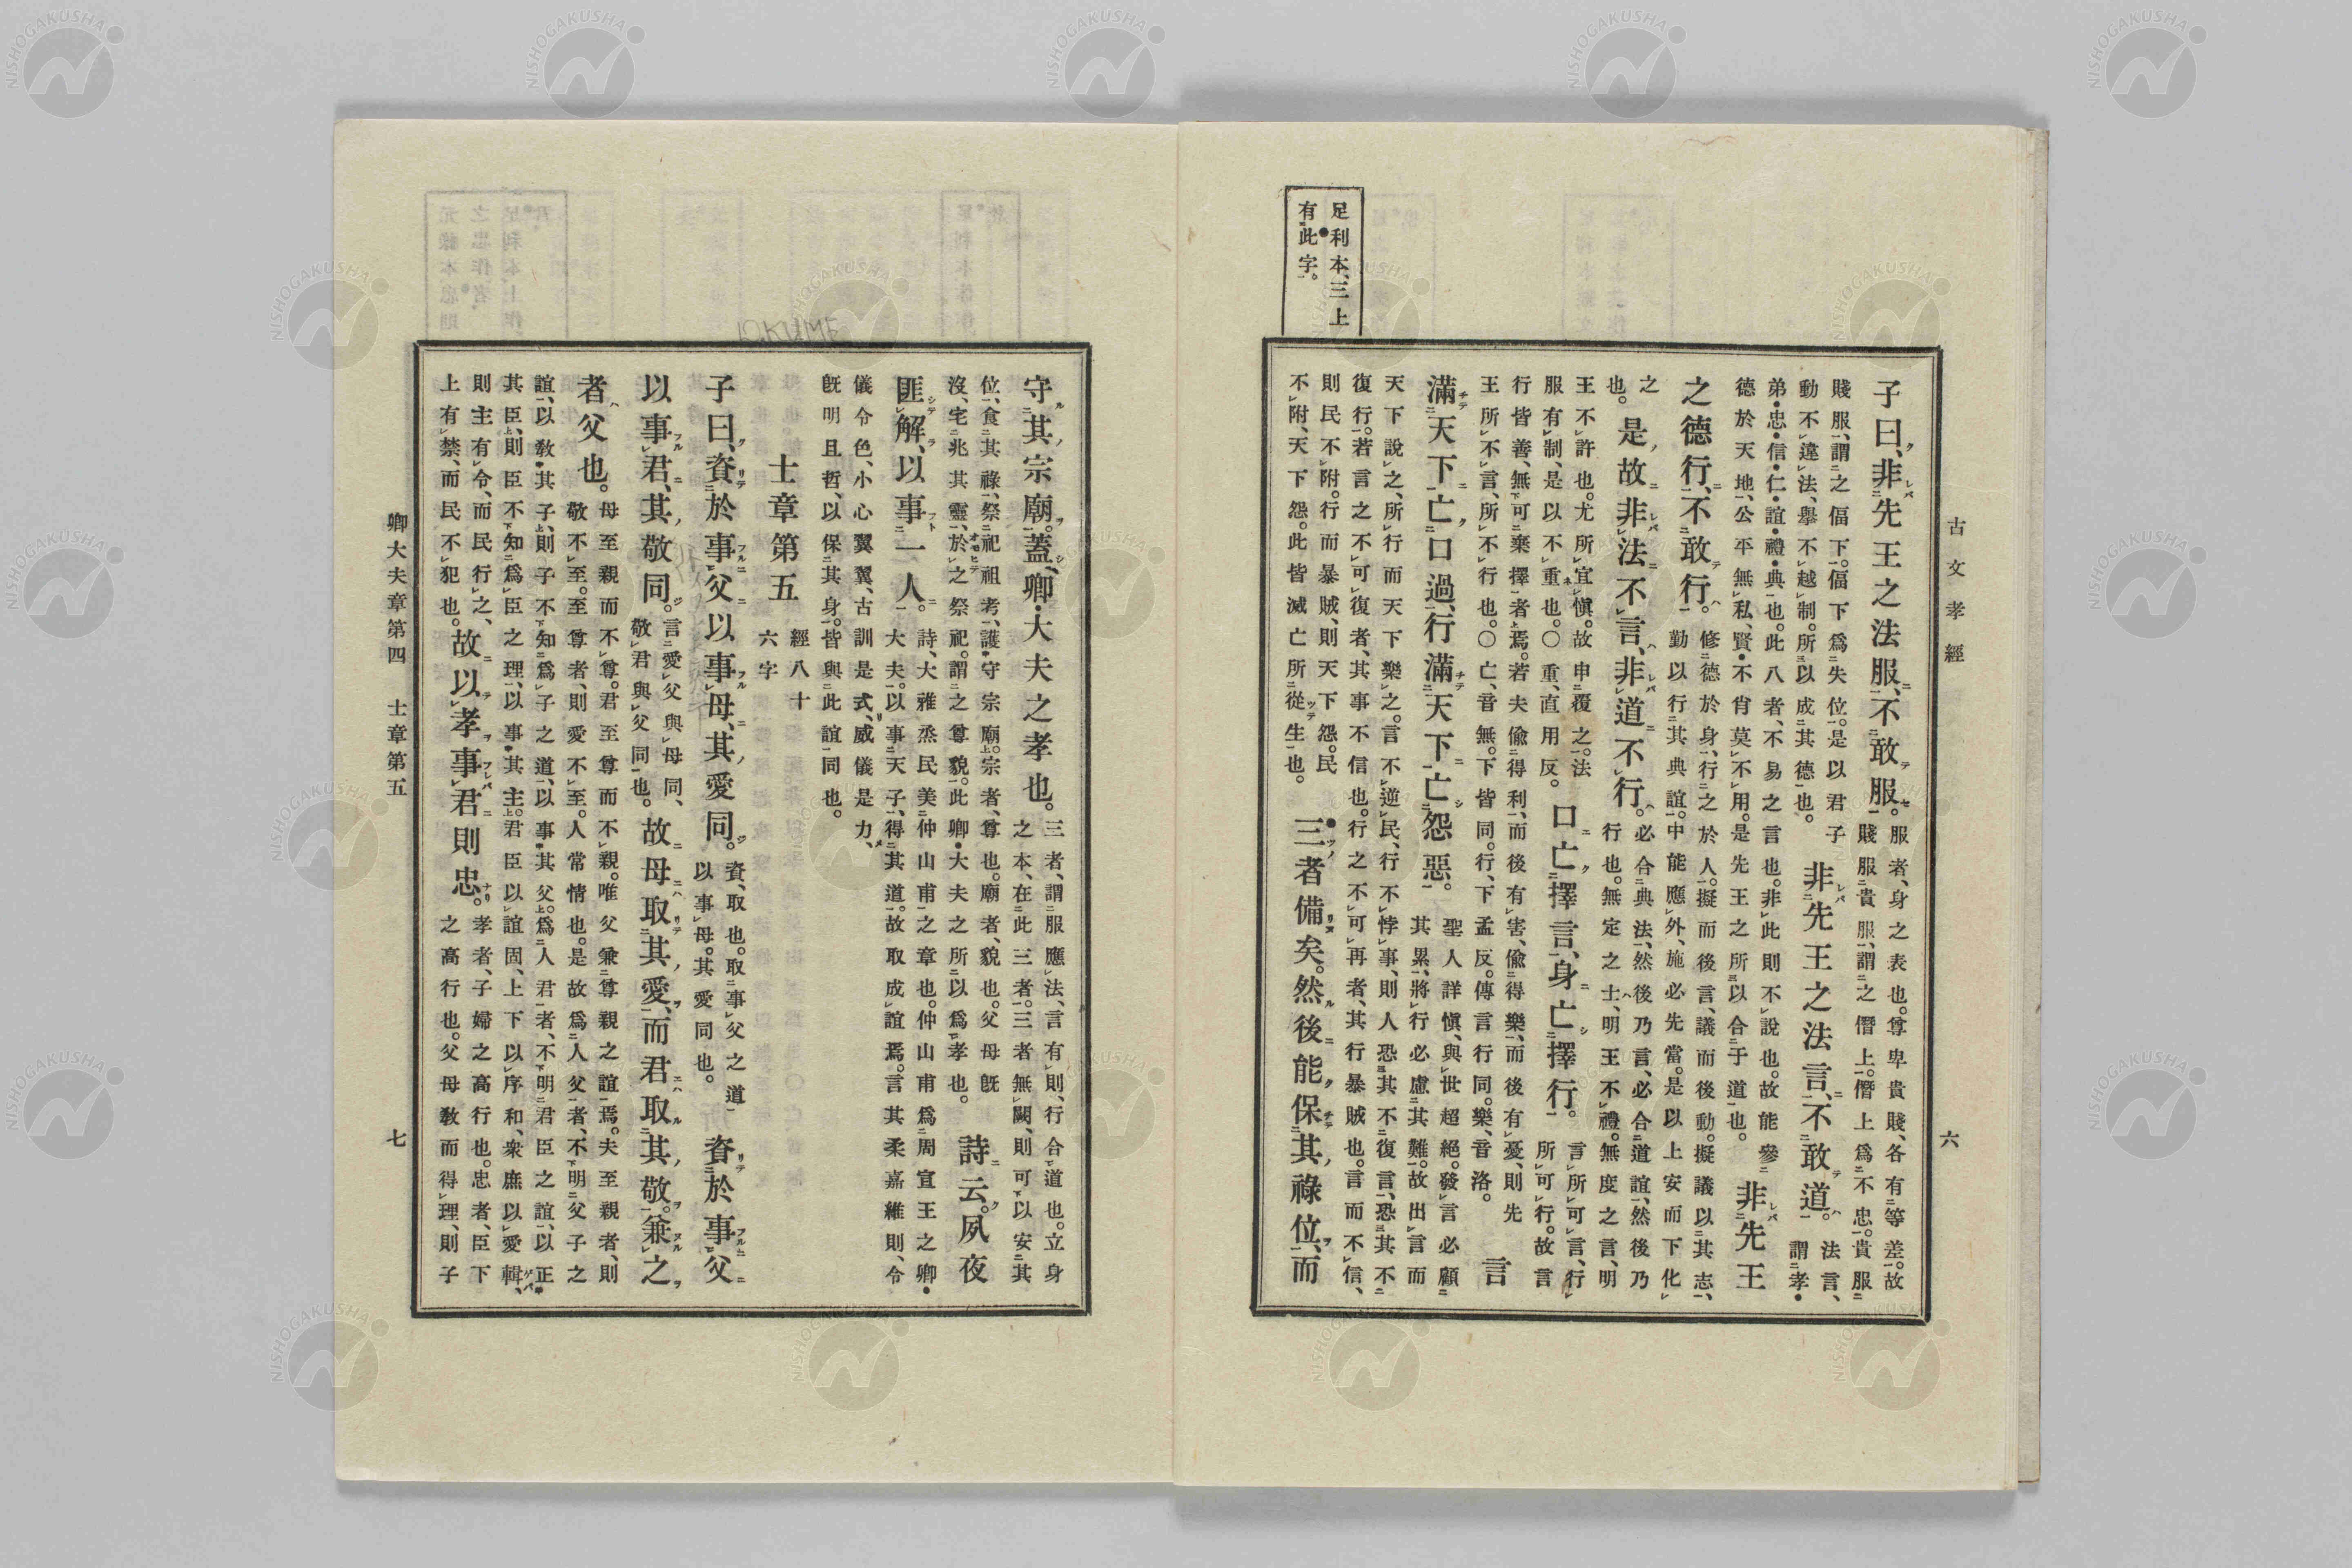 足利本、三上
有此字。
古文孝經
六
子曰、非先王之法服、不敢服。
服者、身之表也。尊卑貴賤、各有等差。故
賤服貴服、謂之僭上。僭上爲不忠。貴服
賤服、謂之偪下。偪下爲失位。是以君子
動不違法、擧不越制。所以成其德也。
非先王之法言、不敢道。
法言、
謂孝・
弟・忠・信・仁・誼・禮・典也。此八者、不易之言也。非此則不說也。故能參
德於天地、公平無私、賢・不肖莫不用。是先王之所以合于道也。
非先王
之德行、不敢行。
修德於身、行之於人。擬而後言、議而後動。擬議以其志、
勤以行其典誼。中能應外、施必先當。是以上安而下化
之
也。
是故非法不言、非道不行。
必合典法、然後乃言、必合道誼、然後乃
行也。無定之士、明王不禮。無度之言、明
王不許也。尤所宜愼。故申覆之。法
服有制、是以不重也。〇重、直用反。
口亡擇言、身亡擇行。
言所可言、行
所可行。故言
行皆善、無可棄擇者焉。若夫偸得利、而後有害、偸得樂、而後有憂、則先
王所不言、所不行也。〇亡、音無。下皆同。行、下孟反。傳言行同。樂、音洛。
言
滿天下亡口過、行滿天下亡怨惡。
聖人詳愼、與世超絕。發言必顧
其累、將行必慮其難。故出言而
天下說之、所行而天下樂之。言不逆民、行不悖事、則人恐其不復言、恐其不
復行。若言之不可復者、其事不信也。行之不可再者、其行暴賊也。言而不信、
則民不附。行而暴賊、則天下怨。民
不附、天下怨。此皆滅亡所從生也。
三者備矣。然後能保其祿位、而
守其宗廟。蓋、卿・大夫之孝也。
三者、謂服應法、言有則、行合道也。立身
之本、在此三者。三者無闕、則可以安其
位、食其祿、祭祀祖考、護守宗廟。宗者、尊也。廟者、貌也。父母旣
沒、宅兆其靈、於之祭祀。謂之尊貌。此卿・大夫之所以爲孝也。
詩云。夙夜
匪解、以事一人。
詩、大雅烝民、美仲山甫之章也。仲山甫爲周宣王之卿・
大夫。以事天子、得其道。故取成誼焉。言其柔嘉維則、令
儀令色、小心翼翼、古訓是式、威儀是力、
旣明且哲、以保其身。皆與此誼同也。
士章第五
經八十
六字
子曰、資於事父以事母、其愛同。
資、取也。取事父之道
以事母。其愛同也。
資於事父
以事君、其敬同。
言愛父與母同、
敬君與父同也。
故母取其愛、而君取其敬。兼之
者父也。
母至親而不尊。君至尊而不親。唯父兼尊親之誼焉。夫至親者、則
敬不至。至尊者、則愛不至。人常情也。是故爲人父者、不明父子之
誼、以敎其子、則子不知爲子之道、以事其父。爲人君者、不明君臣之誼、以正
其臣、則臣不知爲臣之理、以事其主。君臣以誼固、上下以序和、衆庶以愛輯、
則主有令、而民行之、
上有禁、而民不犯也。
故以孝事君則忠。
孝者、子婦之高行也。忠者、臣下
之高行也。父母敎而得理、則子
卿大夫章第四　士章第五
七
NISHOGAKUSHA